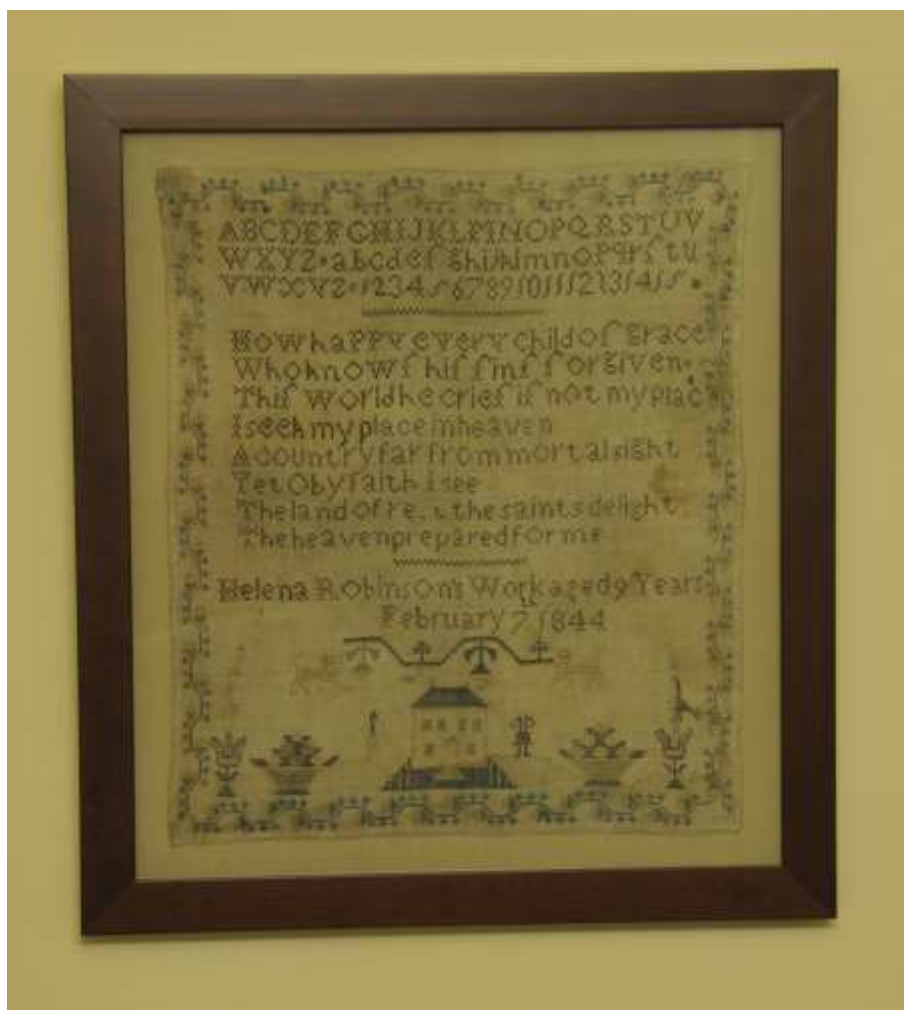 ABCDEFGHIJKLMNOPQRSTUV
WXYZ•abcdef ghijklmnopqrſtu
VWXYZ•123456789101112131415•
How happy every child of grace
Who knowſ hiſ ſinſ forgiven
Thiſ world he crieſ iſ not my plac
I seek my place in heaven
A country far from mortal sight
Yet O by faith i see
The land of the saints delight
The heaven prepared for me
Helena Robinson's Work aged 9 Years
February 7 1844